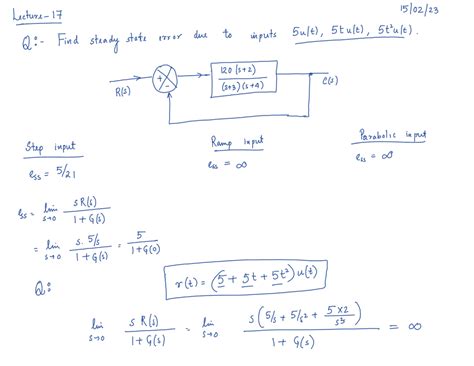 Lecture-17 15/02/23
Q:- Find steady state error due to inputs 5u(t), 5tu(t), 5t²u(t).
R(s) + - 120(s+2) / (s+3)(s+4) C(s)
Step input Ramp input Parabolic input
ess = 5/21 ess = ∞ ess = ∞
ess = lim s→0 sR(s) / 1+G(s)
= lim s→0 s. 5/s / 1+G(s) = 5 / 1+G(0)
Q: r(t) = (5 + 5t + 5t²)u(t)
lim s→0 s R(s) / 1+G(s) = lim s→0 s(5/s + 5/s² + 5×2/s³) / 1+G(s) = ∞